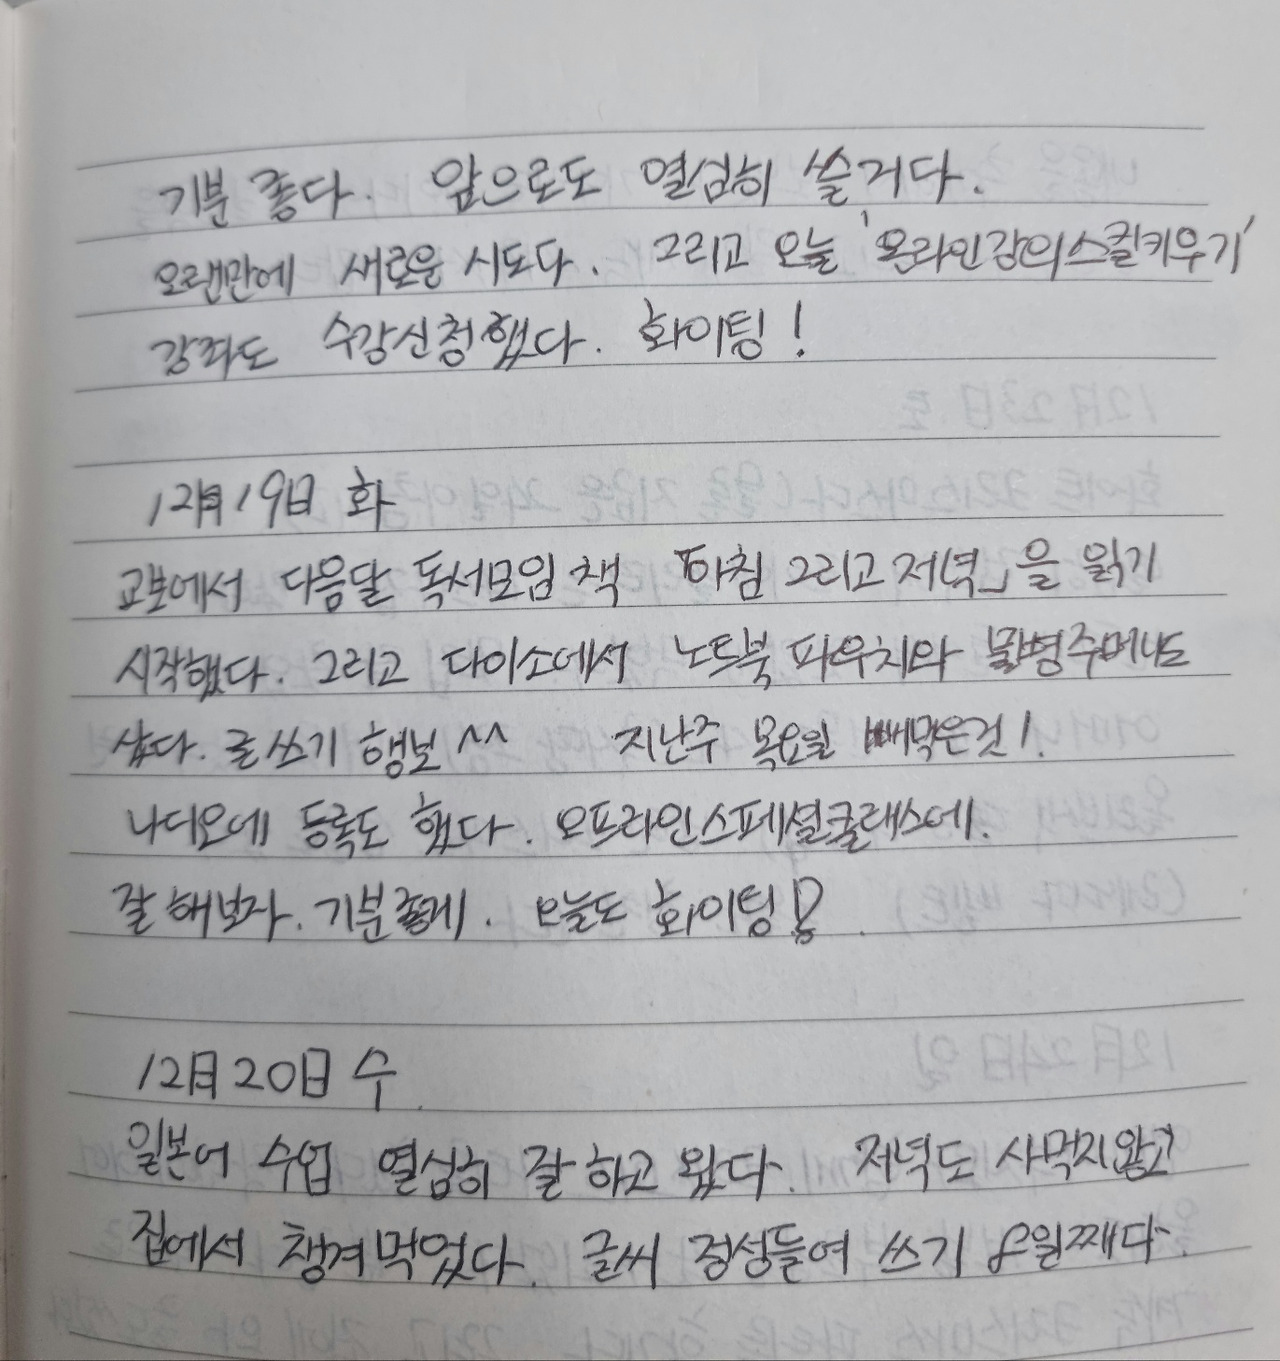 기분 좋다. 앞으로도 열심히 쓸거다.
오랜만에 새로운 시도다. 그리고 오늘 '온라인강의스킬키우기'
강좌도 수강신청했다. 화이팅!
12月 19日 화
교보에서 다음달 독서모임 책 「아침 그리고 저녁」을 읽기
시작했다. 그리고 다이소에서 노트북 파우치와 물병주머니도
샀다. 글쓰기 행보 ^^ 지난주 목요일 빼먹은것!
나디오에 등록도 했다. 오프라인스페셜클래스에.
잘 해보자. 기분좋게. 오늘도 화이팅!
12月 20日 수
일본어 수업 열심히 잘 하고 왔다. 저녁도 사먹지않고
집에서 챙겨먹었다. 글씨 정성들여 쓰기 8일째다.